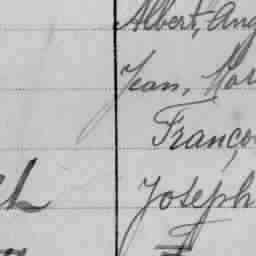 Albert, Aug
Jean, Mar
Franço
Joseph